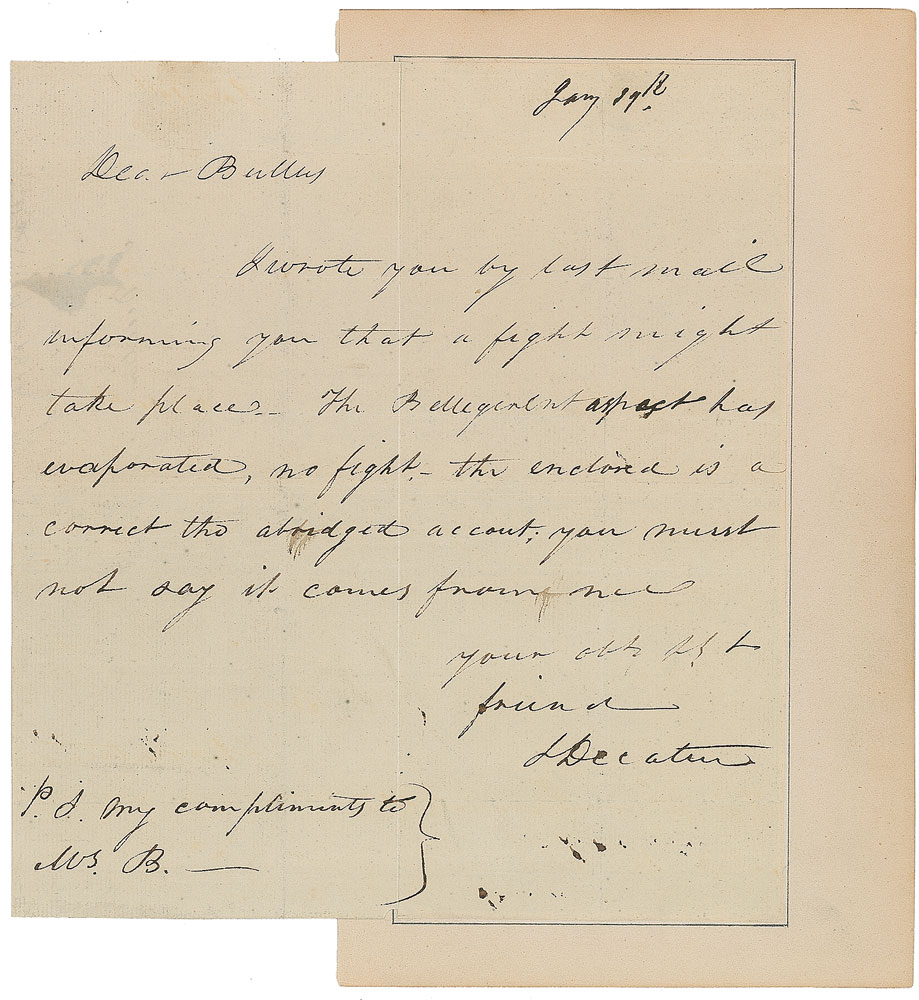 Jany 19th
Dear Bullus
I wrote you by last mail
informing you that a fight might
take place_ The Bellegerent aspect has
evaporated, no fight_ the enclosed is a
correct tho abridged accout; you must
not say it comes from me
your obt &
friend
S Decatur
P. S. my compliments to
Mrs. B. —